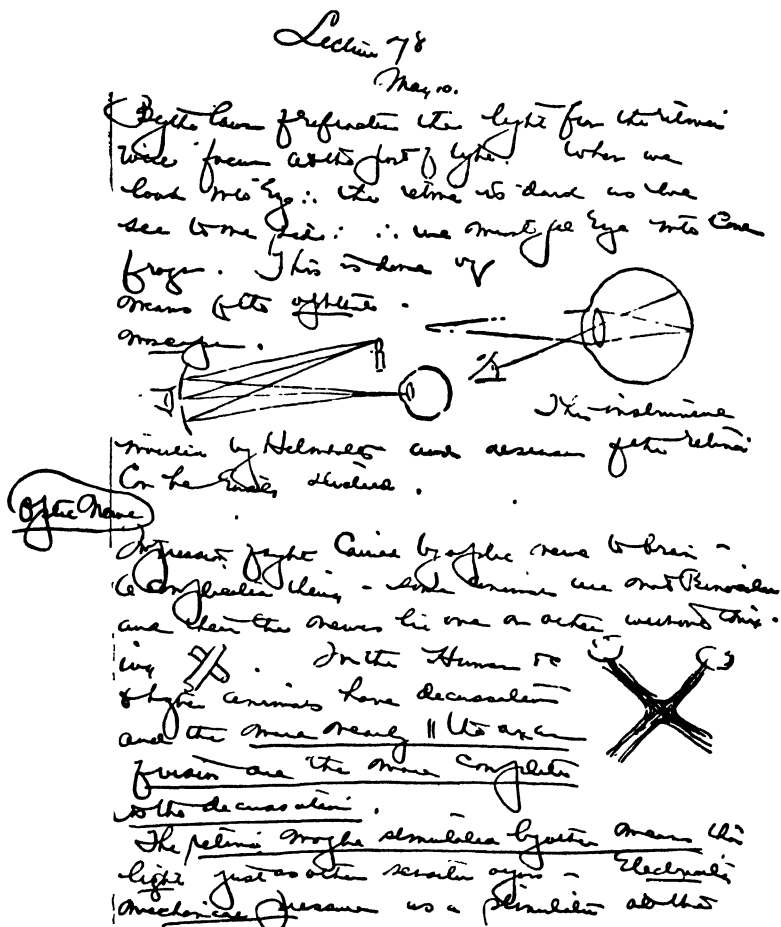 Lecture 78
May 10.
By the laws of refraction the light from the retina
will focus at the point of light. When we
look into Eye ∴ the retina is dark as we
see to one side: ∴ we must get Eye into
This is done by
means of the
This instrument
by Helmholtz and diseases of the retina
can be Easily studied.
Optic Nerve
Impression of sight Carried by optic nerve to brain -
a complicated thing - some animals are not Binocular
and then the nerves lie one on other without mix-
ing. In the Human &
higher animals have decussation
and the more nearly || the axes
of vision are the more complete
is the decussation.
The retina may be stimulated by other means than
light just as other sensitive organs - Electricity
mechanical pressure as a stimulation